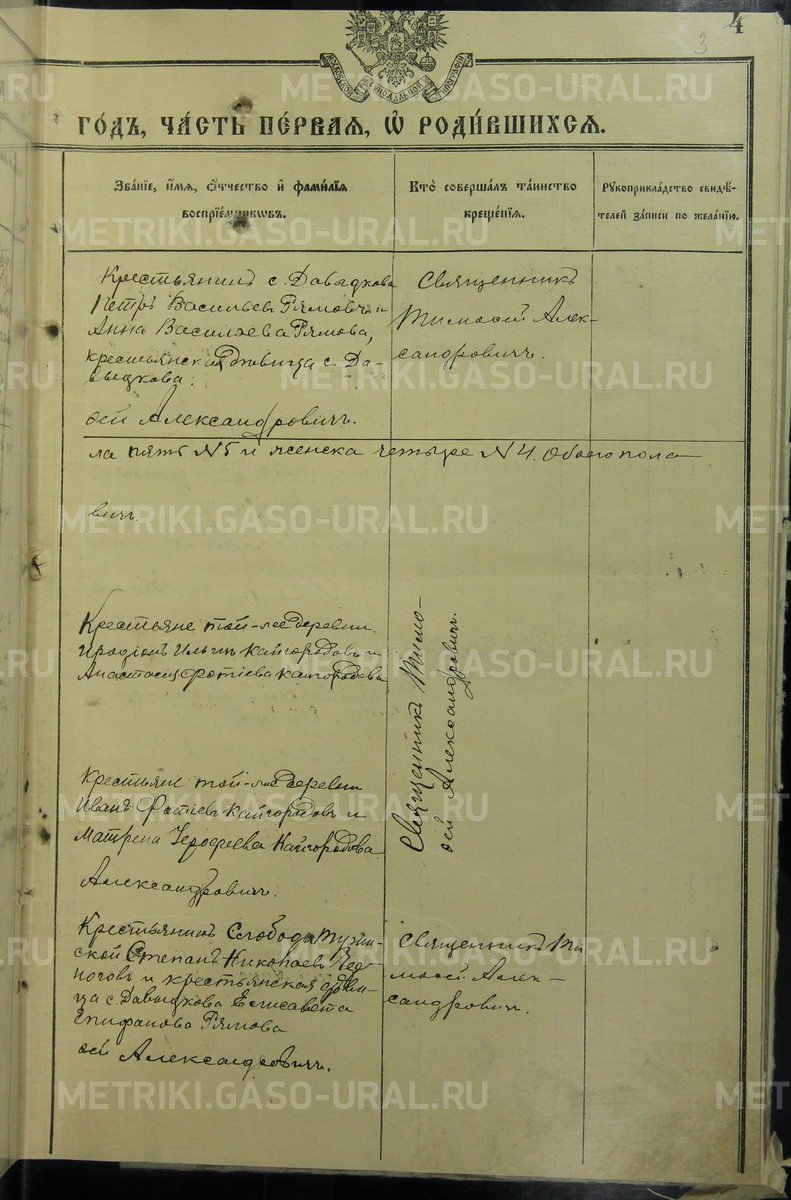 4
3
МОСКОВСКОЙ СѴНОДАЛЬНОЙ ТИПОГРАФІИ
го́дъ, ча́сть пе́рвая, ѡ҆ роди́вшихсѧ.
Зва́нїе, и҆́мѧ, ѻ҆́тчество и҆ фами́лїѧ
воспрїе́мникѡвъ.
Кто̀ соверша́лъ та́инство
креще́нїѧ.
Рꙋкоприкла́дство свидѣ́-
телей за́писи по жела́нїю.
Крестьянинъ с. Давыдкова
Петръ Васильевъ Рямовъ и
Анна Васильева Рямова,
крестьянская девица с. Да-
выдкова.
Священникъ
Тимоѳей Алек-
сандровичъ.
ѳей Александровичъ.
ла пять №5 и женска четыре №4. Обоего пола
вичъ.
Крестьяне той-же деревни
Иродіонъ Ильинъ Кайгородовъ и
Анастасія Фотіева Кайгородова
Священникъ Тимо-
ѳей Александровичъ.
Крестьяне той-же деревни
Иванъ Фотіевъ Кайгородовъ и
Матрена Іерофеева Кайгородова
Александровичъ.
Крестьянинъ Слобода Турин-
ской Степанъ Николаевъ
и крестьянская деви-
ца с. Давыдкова Елисавета
Епифанова Рямова
Священникъ Ти
моѳей Алек-
сандровичъ.
ѳей Александровичъ.
METRIKI.GASO-URAL.RU